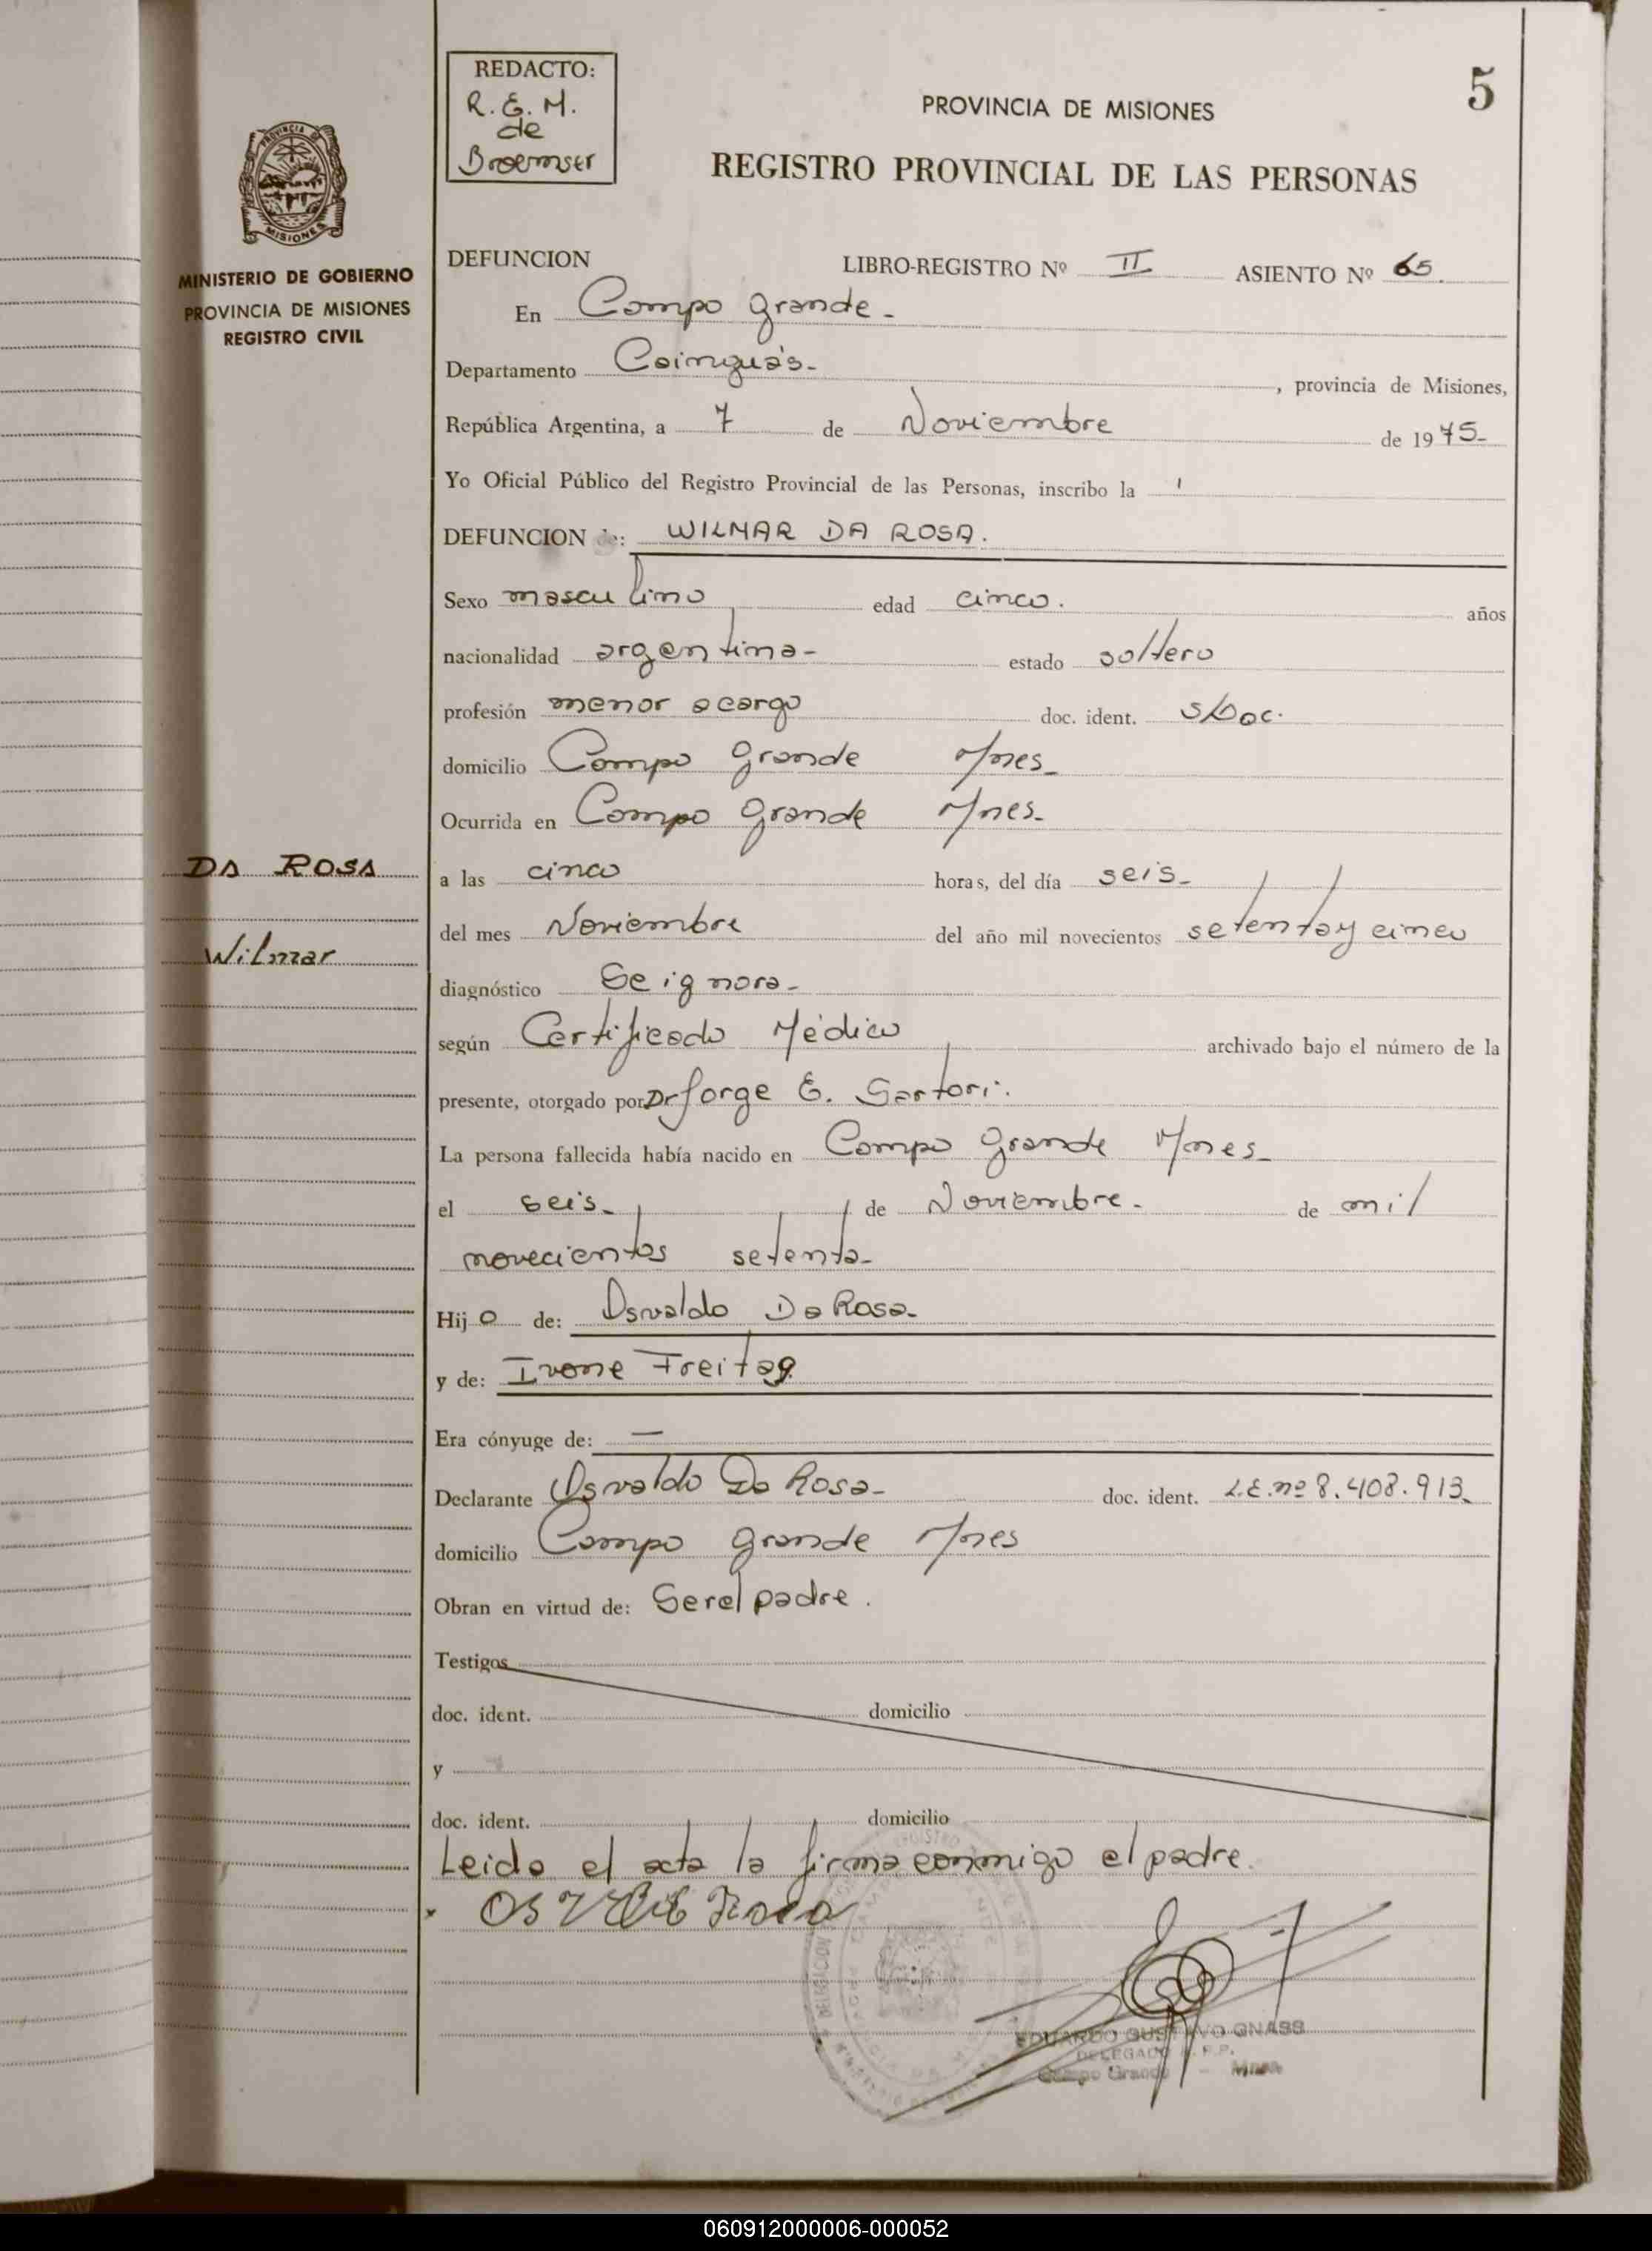 REDACTO:
R. E. M.
de
Broemser
5
PROVINCIA DE MISIONES
REGISTRO PROVINCIAL DE LAS PERSONAS
PROVINCIA DE
MISIONES
MINISTERIO DE GOBIERNO
PROVINCIA DE MISIONES
REGISTRO CIVIL
DEFUNCION LIBRO-REGISTRO Nº II ASIENTO Nº 65.
En Campo Grande-
Departamento Cainguás- , provincia de Misiones,
República Argentina, a 7 de Noviembre de 1975-
Yo Oficial Público del Registro Provincial de las Personas, inscribo la
DEFUNCION de: WILMAR DA ROSA.
Sexo masculino edad cinco. años
nacionalidad argentina- estado soltero
profesión menor a cargo doc. ident. s/Doc.
domicilio Campo Grande Mnes-
Ocurrida en Campo Grande Mnes-
DA ROSA
Wilmar
a las cinco horas, del día seis-
del mes Noviembre del año mil novecientos setenta y cinco
diagnóstico Se ignora-
según Certificado Médico archivado bajo el número de la
presente, otorgado por Dr Jorge E. Sartori.
La persona fallecida había nacido en Campo Grande Mnes-
el seis- de Noviembre- de mil
novecientos setenta-
Hijo de: Osvaldo Da Rosa-
y de: Ivone Freitag
Era cónyuge de: —
Declarante Osvaldo Da Rosa- doc. ident. L.E. nº 8.408.913-
domicilio Campo Grande Mnes
Obran en virtud de: Ser el padre.
Testigos
doc. ident. domicilio
y
doc. ident. domicilio
Leida el acta la firma conmigo el padre.
EDUARDO GUSTAVO GNASS
DELEGADO R. P. P.
Campo Grande - Mnes.
060912000006-000052